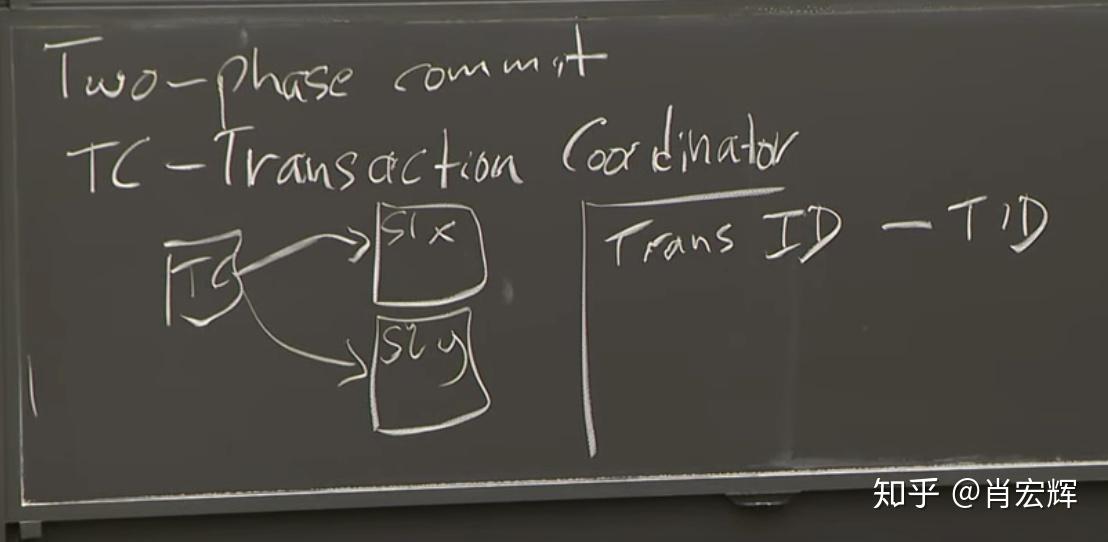 Two-phase commit
TC-Transaction Coordinator
TC
S1 x
S2 y
Trans ID - TID
知乎 @肖宏辉